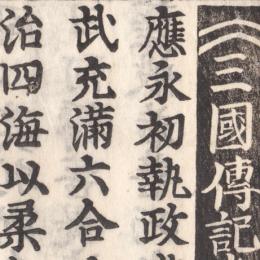 三國傳記
應永初執政
武充滿六合
治四海以柔